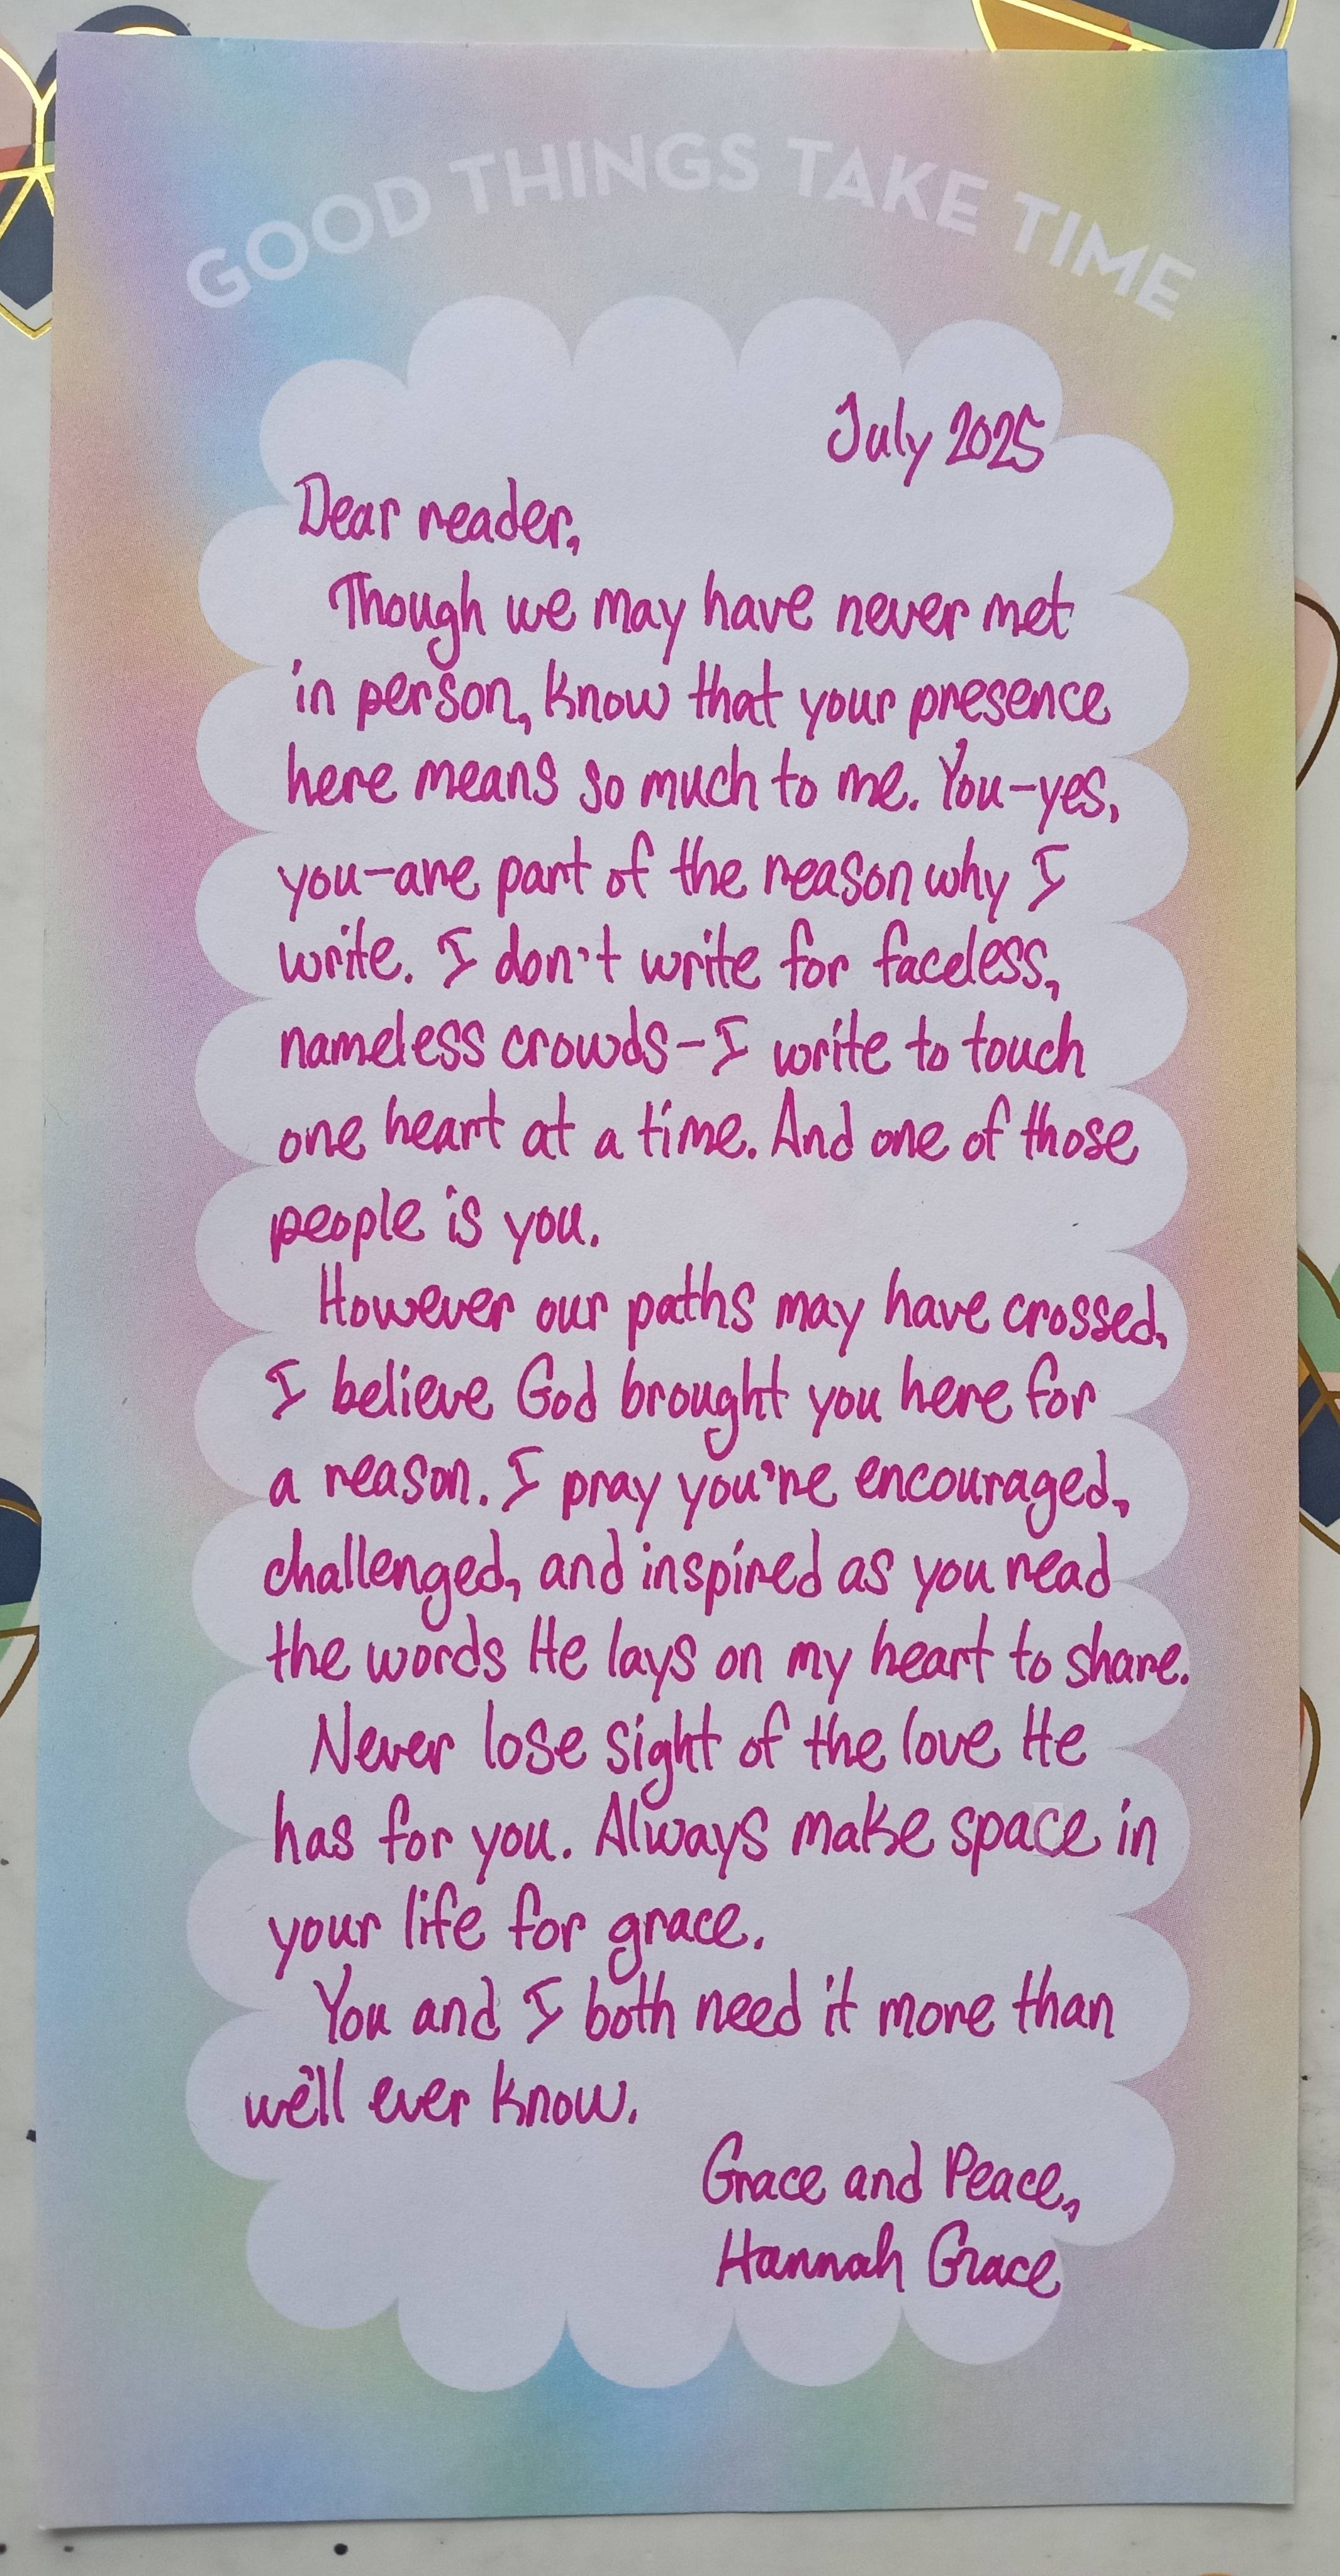 GOOD THINGS TAKE TIME
July 2025
Dear reader,
Though we may have never met
in person, know that your presence
here means so much to me. You-yes,
you-are part of the reason why I
write. I don't write for faceless,
nameless crowds-I write to touch
one heart at a time. And one of those
people is you.
However our paths may have crossed,
I believe God brought you here for
a reason. I pray you're encouraged,
challenged, and inspired as you read
the words He lays on my heart to share.
Never lose sight of the love He
has for you. Always make space in
your life for grace.
You and I both need it more than
we'll ever know.
Grace and Peace,
Hannah Grace